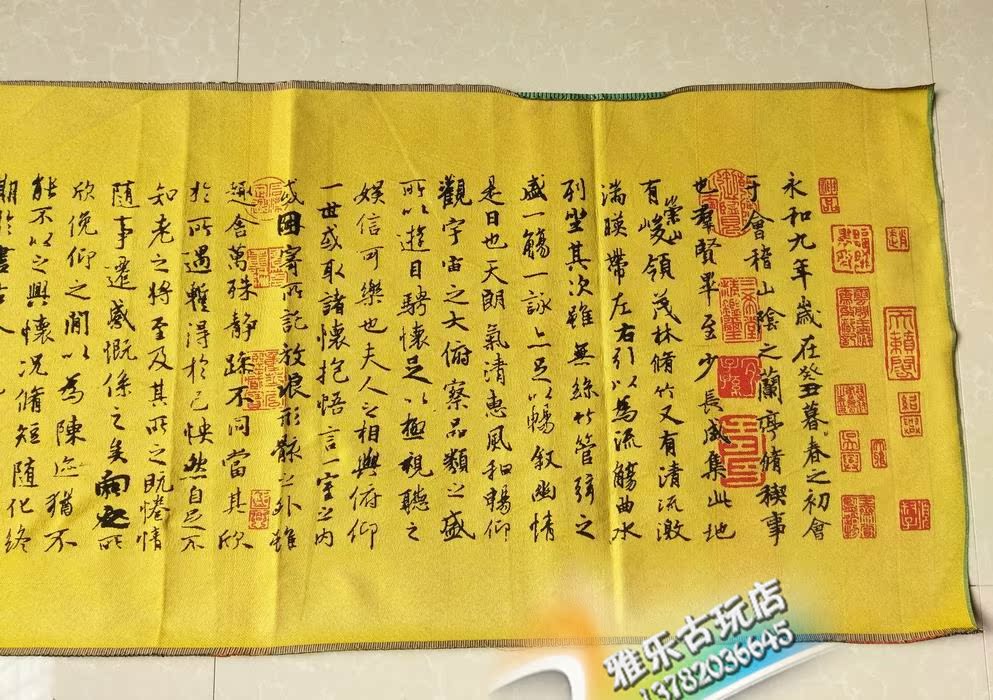 永和九年歲在癸丑暮春之初會
于會稽山陰之蘭亭脩稧事
也羣賢畢至少長咸集此地
有崇山峻領茂林脩竹又有清流激
湍暎帶左右引以為流觴曲水
列坐其次雖無絲竹管弦之
盛一觴一詠亦足以暢敘幽情
是日也天朗氣清惠風和暢仰
觀宇宙之大俯察品類之盛
所以遊目騁懷足以極視聽之
娛信可樂也夫人之相與俯仰
一世或取諸懷抱悟言一室之內
或因寄所託放浪形骸之外雖
趣舍萬殊靜躁不同當其欣
於所遇暫得於己怏然自足不
知老之將至及其所之既惓情
隨事遷感慨係之矣向之所
欣俛仰之閒以為陳迹猶不
能不以之興懷況脩短隨化終
期於盡古人
雅乐古玩店
13782036645